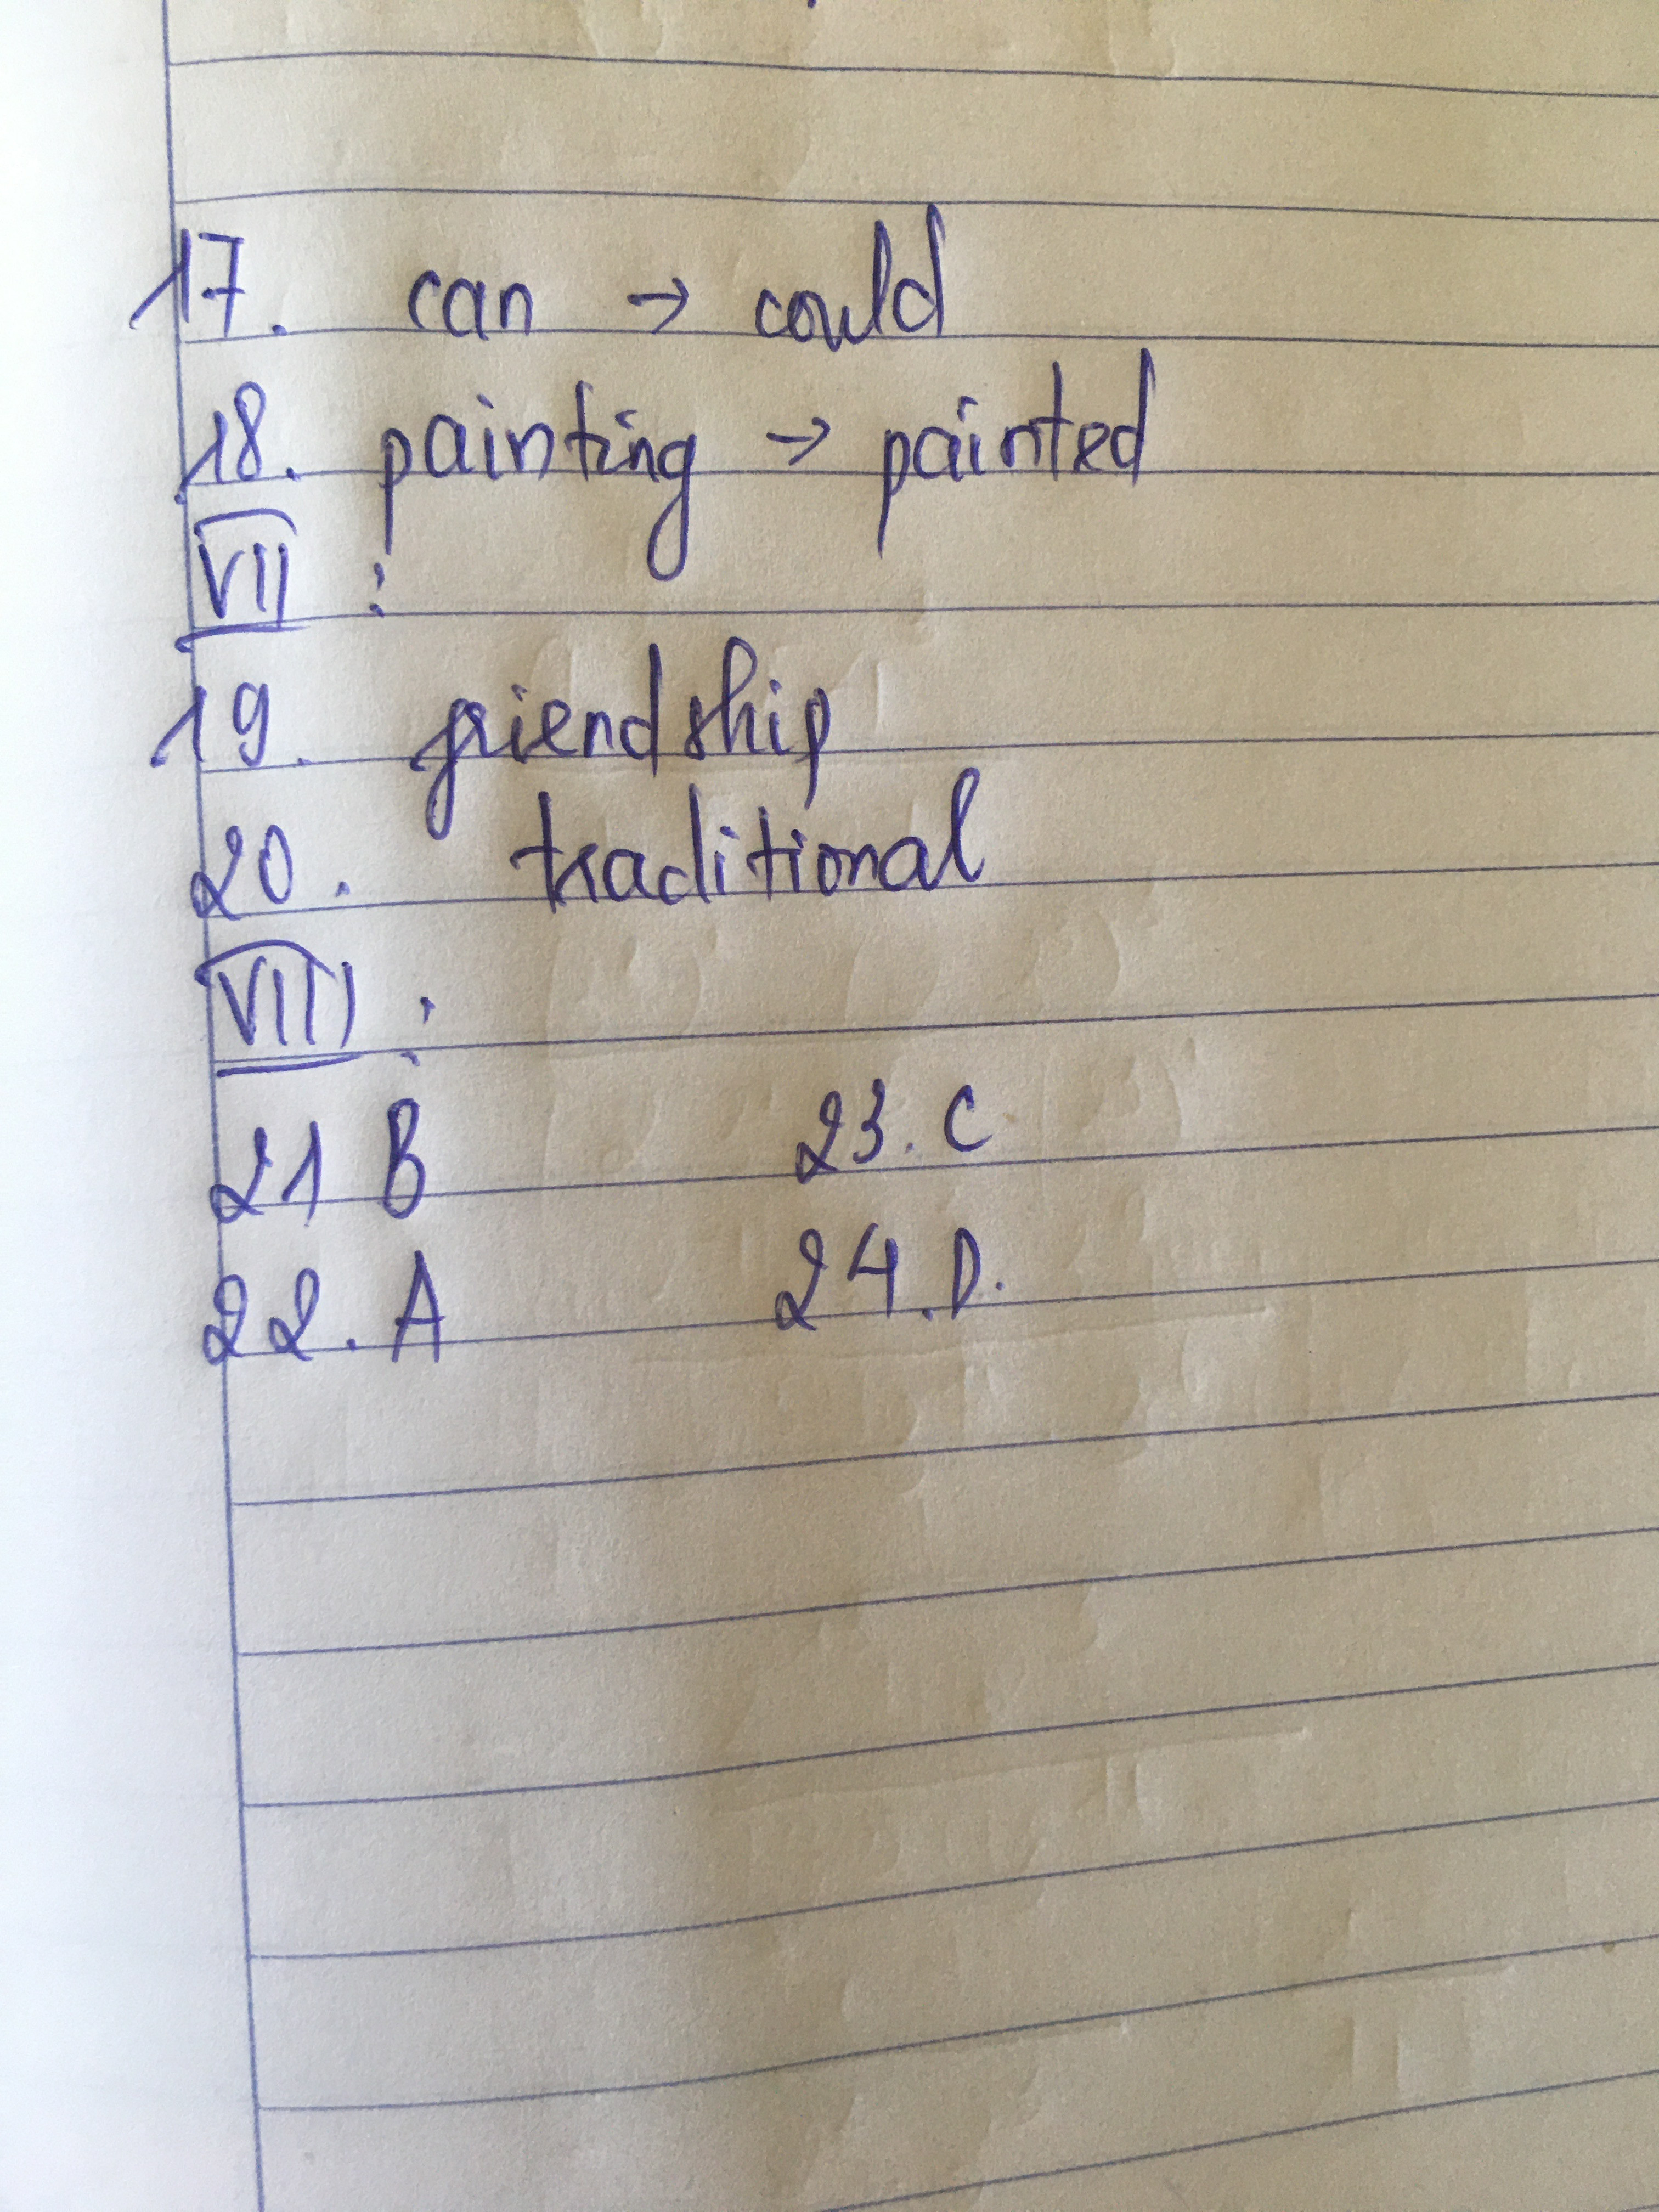 17. can → could
18. painting → painted
VII :
19. friendship
20. traditional
VIII :
21 B 23. C
22. A 24. D.